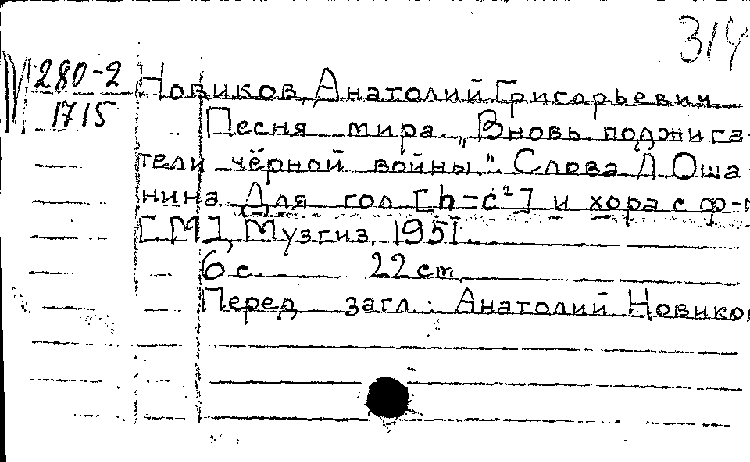 314
М 280-2
1715
Новиков, Анатолий Григорьевич
Песня мира „Вновь поджига-
тели чёрной войны". Слова Л Оша-
нина. Для гол [h-c²] и хора с ф-п
[М], Музгиз, 1951.
6 с. 22 cm.
Перед загл.: Анатолий Новиков